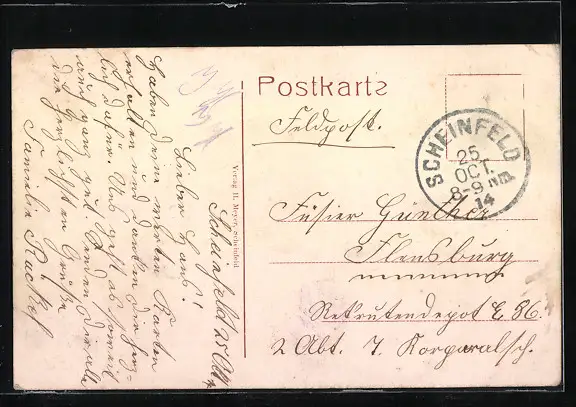 Postkarte
Feldpost.
SCHEINFELD
25
OCT.
8-9 Nm.
14
Füsier Günther
Flensburg
Rekrutendepot E 86.
2 Abt. 7. Korporalsch.
Verlag H. Meyer, Scheinfeld
Scheinfeld 25 Okt.
Lieber Hans!
Haben Deine werten Karten
erhalten und danken Dir herz-
lich dafür. Uns geht es soweit
auch ganz gut. Senden Dir alle
die herzlichsten Grüße
Familie